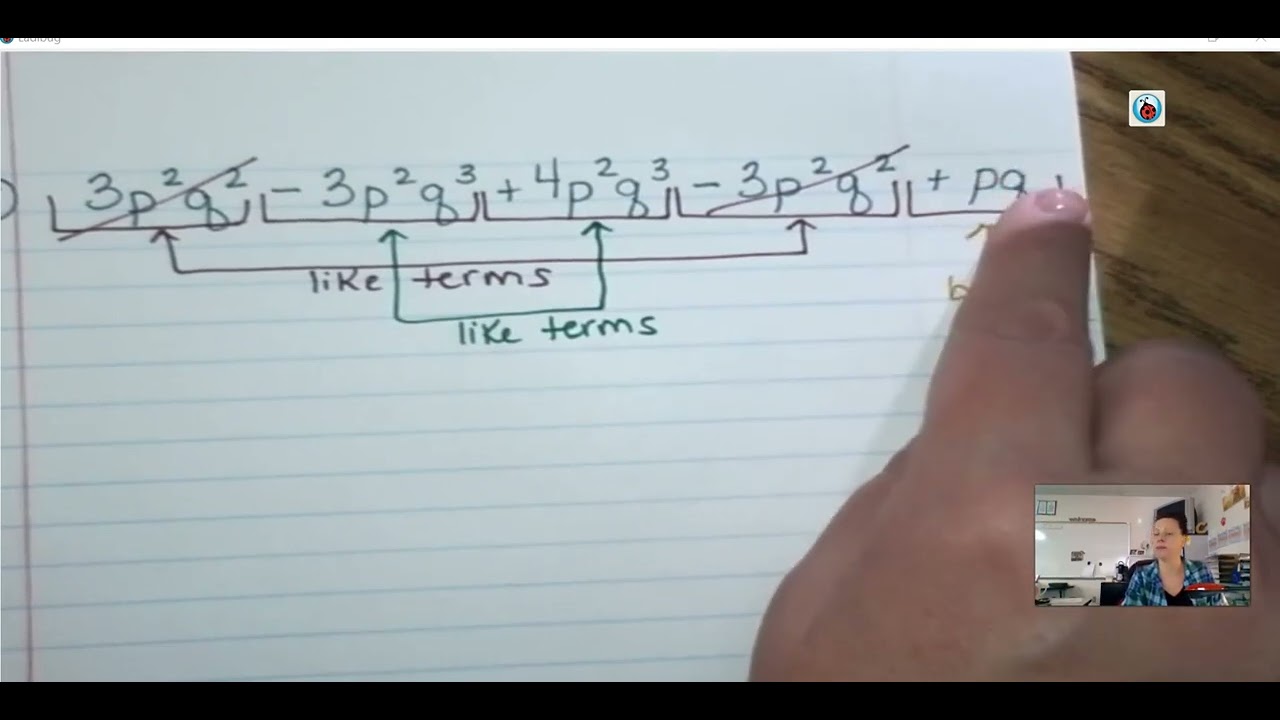 Ladibug
3p²q² - 3p²q³ + 4p²q³ - 3p²q² + pq
like terms
like terms